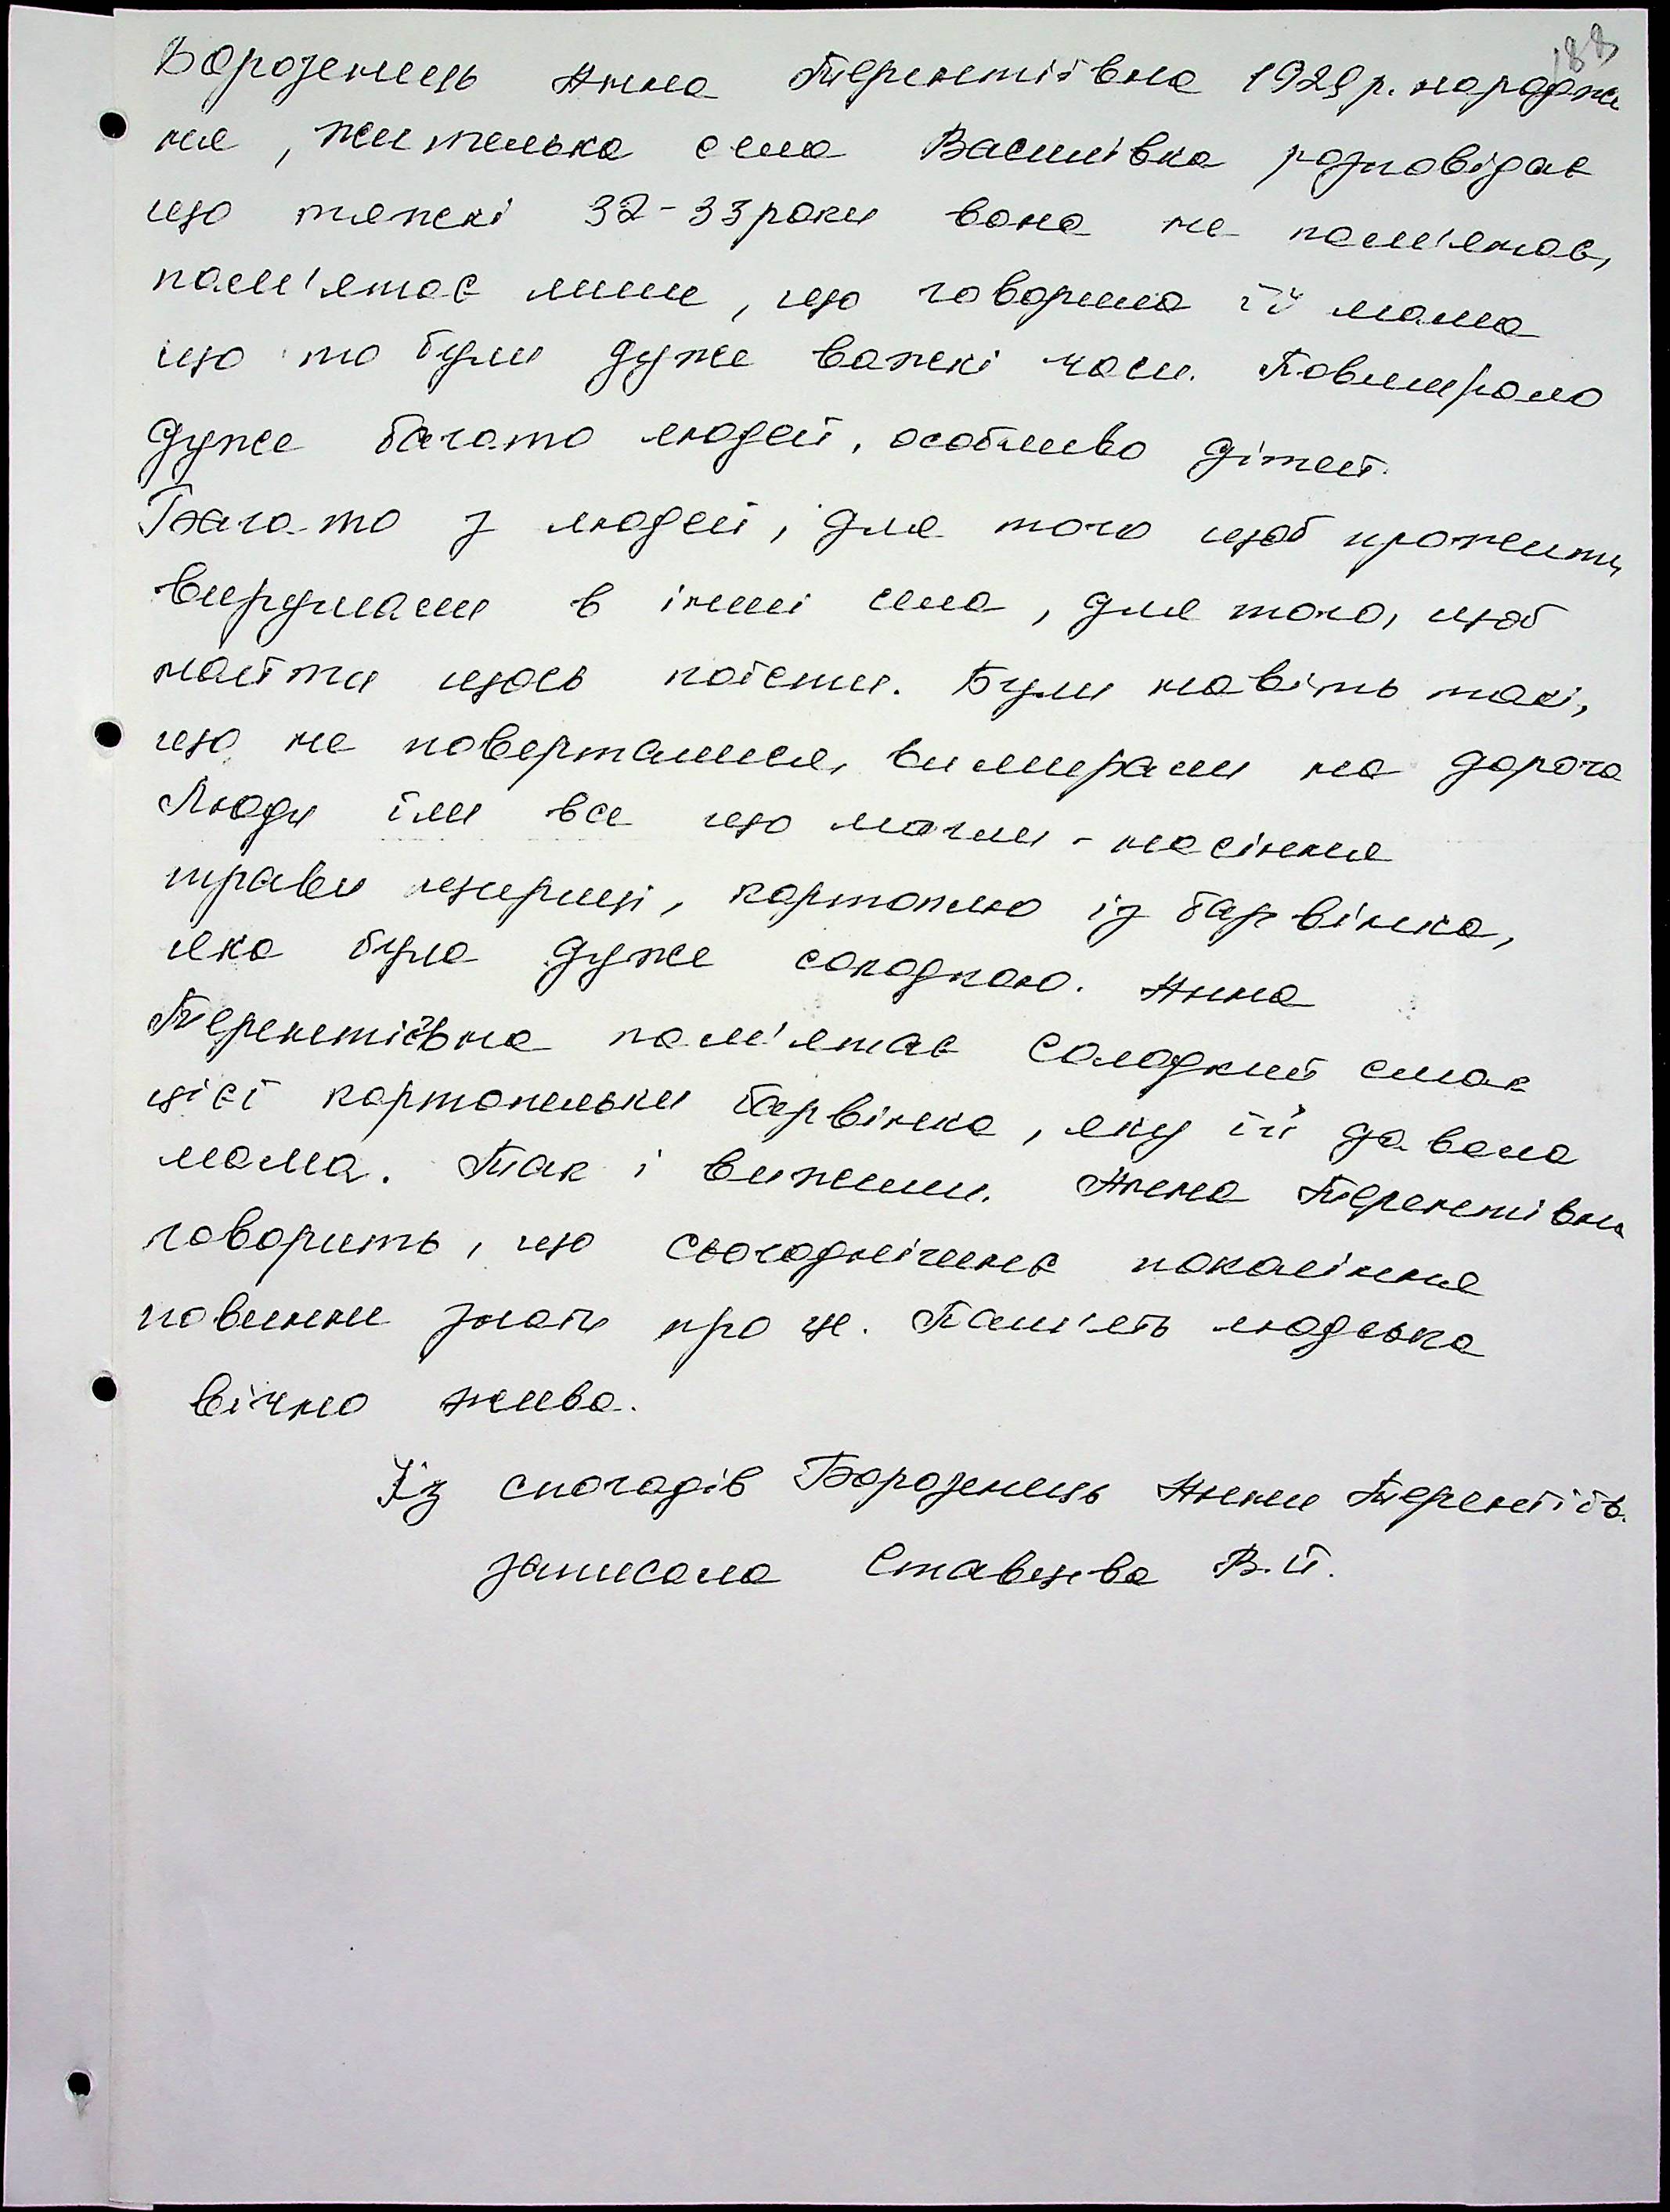 188
Борозенець Анна Терентіївна 1929 р. народже
ння, жителька села Василівка розповідає
що тяжкі 32-33 роки вона не пам'ятає,
пам'ятає лише, що говорила їй мама
що то були дуже важкі часи. Повмирало
дуже багато людей, особливо дітей.
Багато з людей, для того щоб прожити
вирушали в інші села, для того, щоб
найти щось поїсти. Були навіть такі,
що не поверталися, вимирали на дорога
Люди їли все що могли - насіння
трави щириці, картоплю із барвінка,
яка була дуже солодкою. Анна
Терентіївна пам'ятає солодкий смак
цієї картопельки барвінка, яку їй давала
мама. Так і вижили. Анна Терентівна
говорить, що сьогоднішнє покоління
повинни знати про це. Пам'ять людська
вічно жива.
Із спогадів Борозенець Анни Терентіїв.
записала Ставцева В.Й.